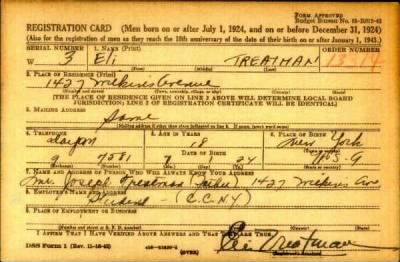 FORM APPROVED
REGISTRATION CARD (Men born on or after July 1, 1924, and on or before December 31, 1924)
(Also for the registration of men as they reach the 18th anniversary of the date of their birth on or after January 1, 1943.)
SERIAL NUMBER 1. NAME (Print) ORDER NUMBER
W 3 Eli TREATMAN
(First) (Middle) (Last)
2. PLACE OF RESIDENCE (Print)
1427 Avenue
[THE PLACE OF RESIDENCE GIVEN ON LINE 2 ABOVE WILL DETERMINE LOCAL BOARD
JURISDICTION; LINE 2 OF REGISTRATION CERTIFICATE WILL BE IDENTICAL]
3. MAILING ADDRESS
Same
4. TELEPHONE 5. AGE IN YEARS 6. PLACE OF BIRTH
Dayton 18 New York
9 9581 7 1 24
7. NAME AND ADDRESS OF PERSON WHO WILL ALWAYS KNOW YOUR ADDRESS
Mr. Joseph Treatman (father) 1427 Ave
8. EMPLOYER'S NAME AND ADDRESS
Student - (C.C.N.Y.)
9. PLACE OF EMPLOYMENT OR BUSINESS
I AFFIRM THAT I HAVE VERIFIED ABOVE ANSWERS AND THAT THEY ARE TRUE.
DSS Form 1 (OVER) Eli Treatman